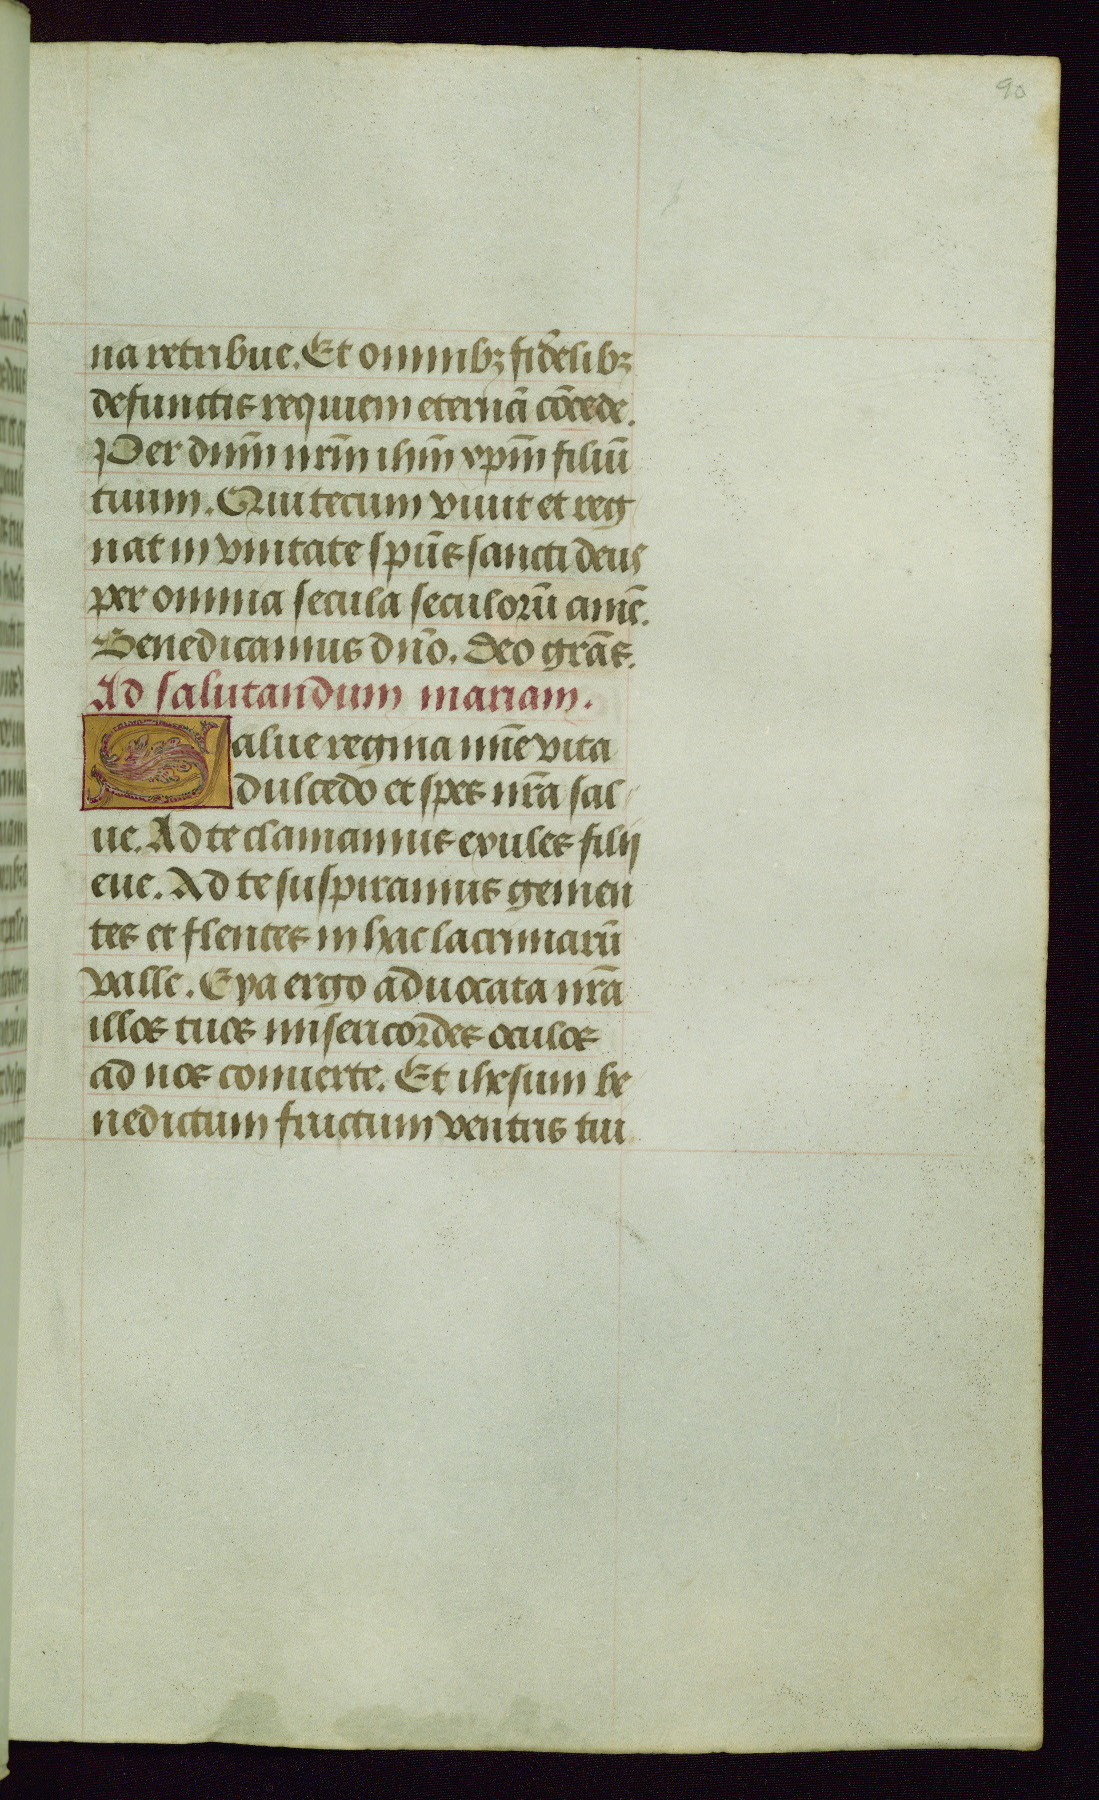 90
na retribue. Et omnibꝫ fidelibꝫ
defunctis requiem eternā cōcede.
Per dnm̄ nrm̄ ihm̄ xpm̄ filiū
tuum. Qui tecum viuit et reg
nat in vnitate spūs sancti deus
per omnia secula seculorū amē.
Benedicamus dno̅. Deo grās.
Ad salutandum mariam.
Salue regina mīe vita
dulcedo et spes nrā sal
ue. Ad te clamamus exules filij
eue. Ad te suspiramus gemen
tes et flentes in hac lacrimarū
valle. Eya ergo aduocata nrā
illos tuos misericordes oculos
ad nos conuerte. Et ihesum be
nedictum fructum ventris tui